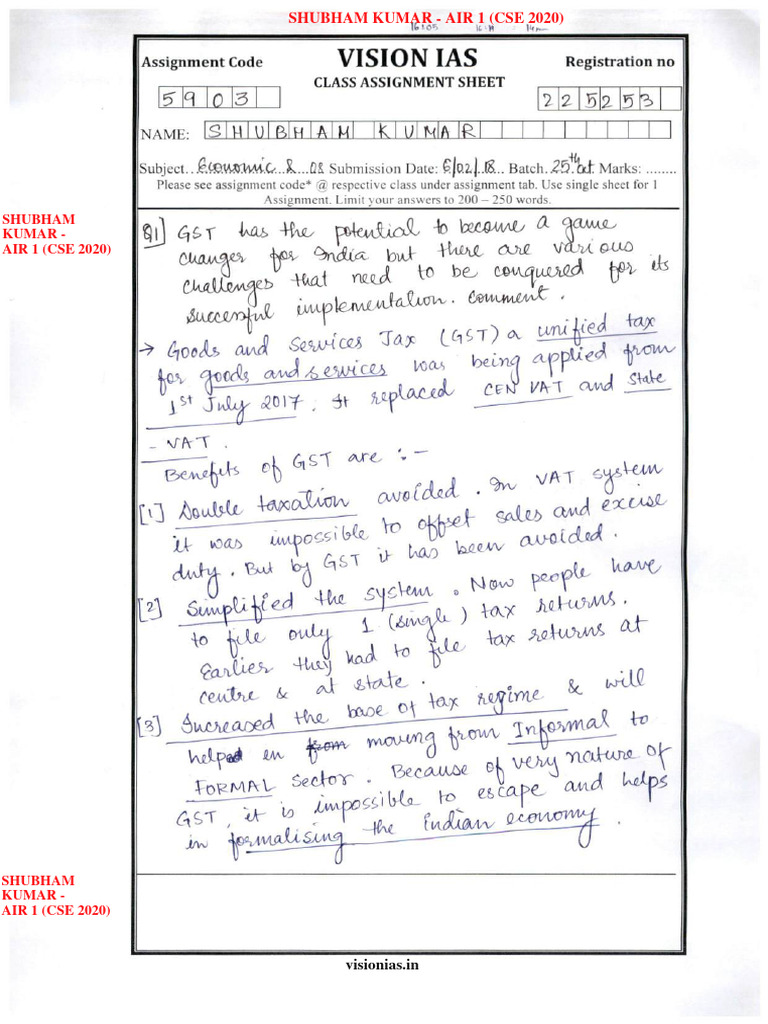 SHUBHAM KUMAR - AIR 1 (CSE 2020)
16:05
Assignment Code
VISION IAS
Registration no
CLASS ASSIGNMENT SHEET
5903
225253
NAME: SHUBHAM KUMAR
Subject.. Economic & .. 08 Submission Date: 6/02/18 .. Batch. 25th Oct Marks: ........
Please see assignment code* @ respective class under assignment tab. Use single sheet for 1
Assignment. Limit your answers to 200 – 250 words.
SHUBHAM
KUMAR -
AIR 1 (CSE 2020)
Q1] GST has the potential to become a game
changer for India but there are various
challenges that need to be conquered for its
successful implementation. Comment.
→ Goods and Services Tax (GST) a unified tax
for goods and services was being applied from
1st July 2017. It replaced CEN VAT and State
- VAT.
Benefits of GST are :-
[1] Double taxation avoided. In VAT system
it was impossible to offset sales and excise
duty. But by GST it has been avoided.
[2] Simplified the system. Now people have
to file only 1 (single) tax returns.
Earlier they had to file tax returns at
centre & at state.
[3] Increased the base of tax regime & will
help en from moving from Informal to
FORMAL sector. Because of very nature of
GST, it is impossible to escape and helps
in formalising the indian economy.
SHUBHAM
KUMAR -
AIR 1 (CSE 2020)
visionias.in